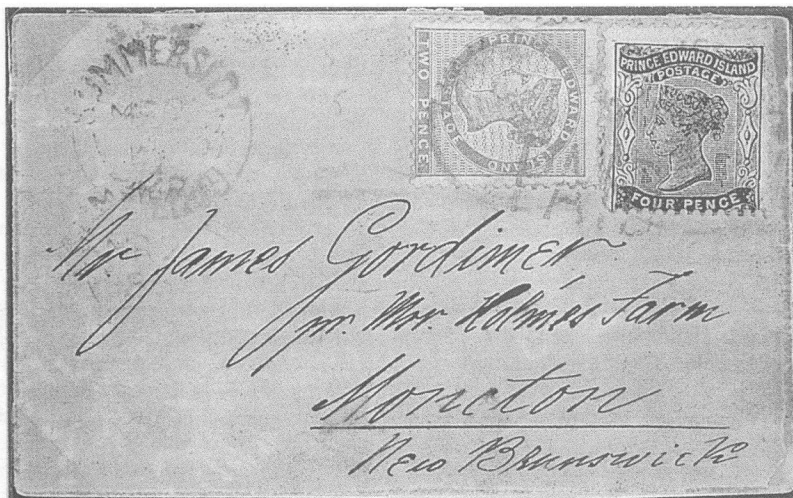 SUMMERSIDE
TWO PENCE
PRINCE EDWARD ISLAND POSTAGE
PRINCE EDWARD ISLAND
POSTAGE
FOUR PENCE
Mr James Gordimer
pr. Mor. Holmes Farm
Moncton
New Brunswick